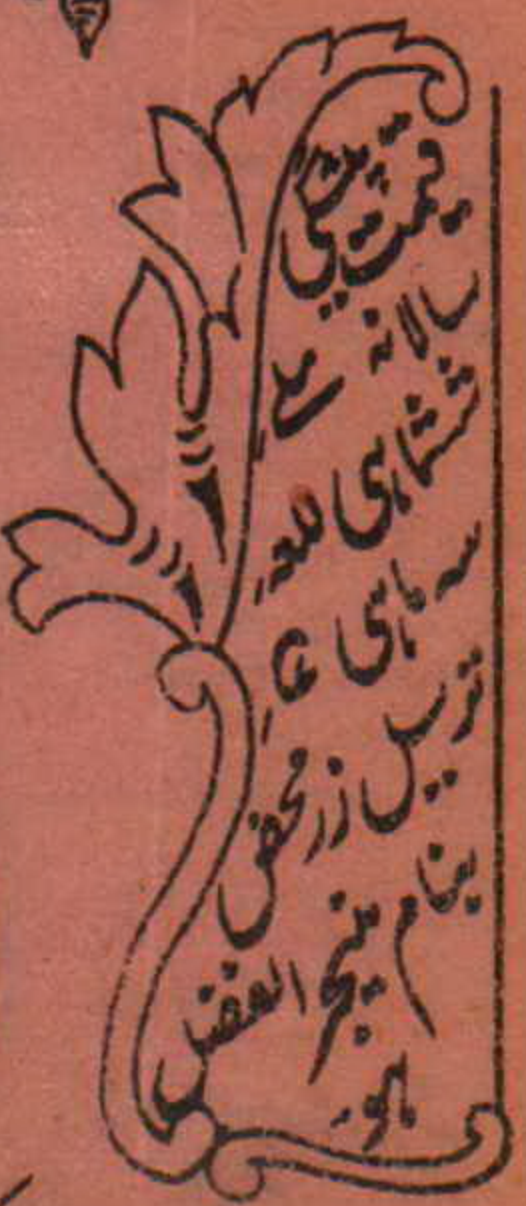 قیمت پیشگی
سالانہ
ششماہی للعہ
سہ ماہی
ترسیل زر محض
بنام مینیجر الفضل
ہو۔